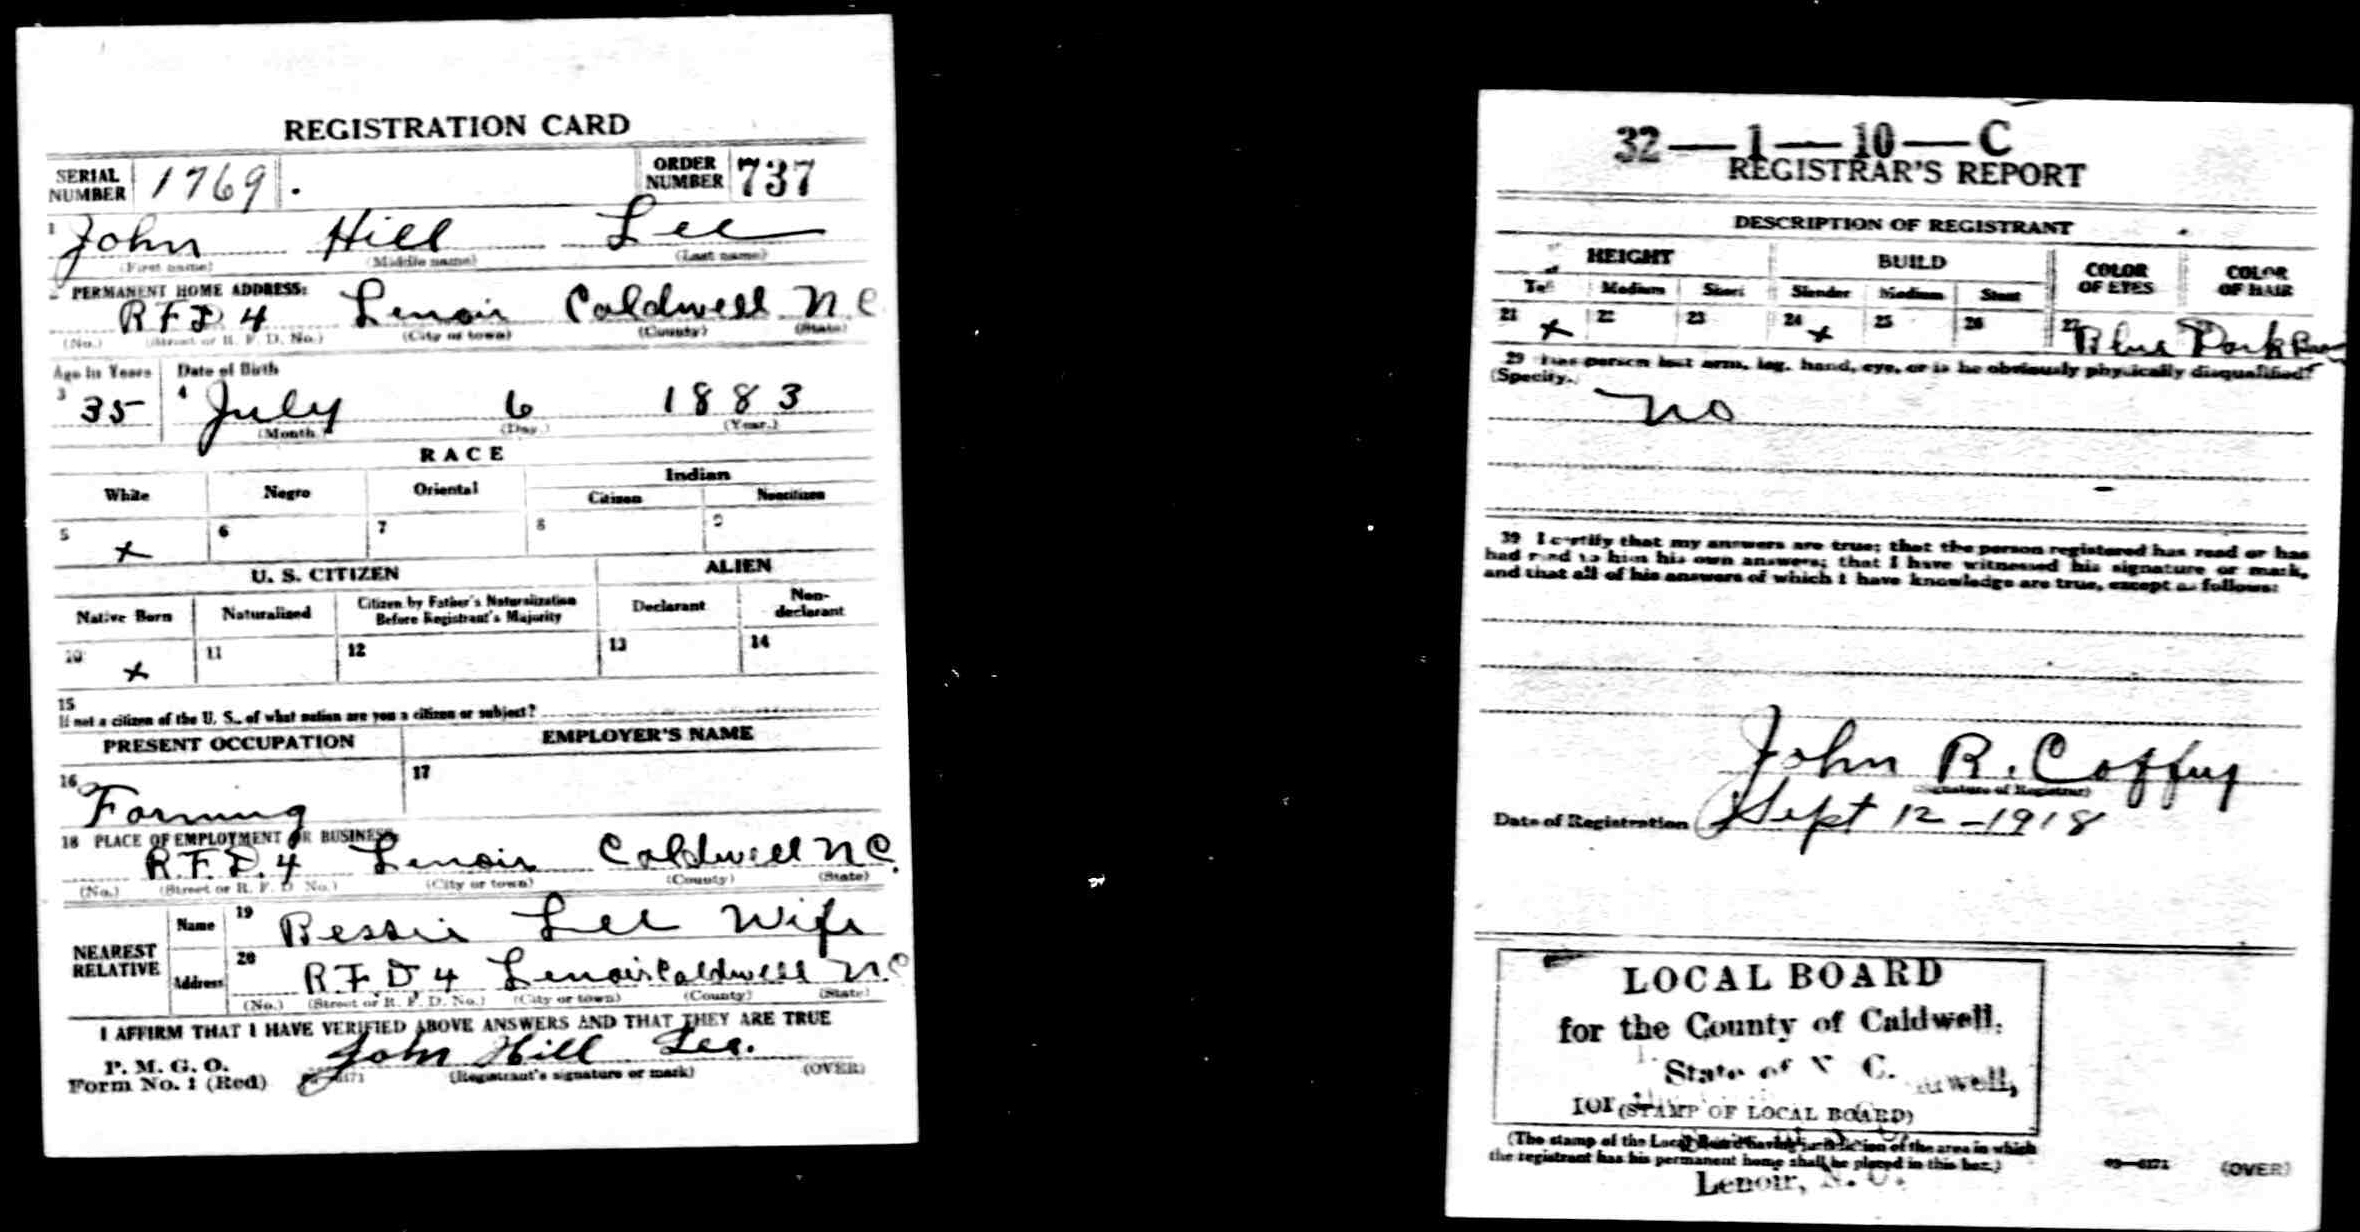 REGISTRATION CARD
SERIAL NUMBER 1769. ORDER NUMBER 737
1 John Hill Lee
(First name) (Middle name) (Last name)
2 PERMANENT HOME ADDRESS:
R F D 4 Lenoir Caldwell N C
(No.) (Street or R. F. D. No.) (City or town) (County) (State)
Age in Years Date of Birth
3 35 4 July 6 1883
(Month.) (Day.) (Year.)
RACE
White Negro Oriental Indian
Citizen Noncitizen
5 x 6 7 8 9
U. S. CITIZEN ALIEN
Native Born Naturalized Citizen by Father's Naturalization Before Registrant's Majority Declarant Non-declarant
10 x 11 12 13 14
15
If not a citizen of the U. S., of what nation are you a citizen or subject?
PRESENT OCCUPATION EMPLOYER'S NAME
16 Farming 17
18 PLACE OF EMPLOYMENT OR BUSINESS:
R.F.D. 4 Lenoir Caldwell N C.
(No.) (Street or R. F. D. No.) (City or town) (County) (State)
NEAREST RELATIVE
Name 19 Bessie Lee Wife
Address 20 R.F.D, 4 Lenoir Caldwell N.C
(No.) (Street or R. F. D. No.) (City or town) (County) (State)
I AFFIRM THAT I HAVE VERIFIED ABOVE ANSWERS AND THAT THEY ARE TRUE
P. M. G. O.
Form No. 1 (Red) John Hill Lee.
(Registrant's signature or mark) (OVER)
32—1—10—C
REGISTRAR'S REPORT
DESCRIPTION OF REGISTRANT
HEIGHT BUILD COLOR OF EYES COLOR OF HAIR
Tall Medium Short Slender Medium Stout
21 x 22 23 24 x 25 26 27 Blue Dark
29 Has person lost arm, leg, hand, eye, or is he obviously physically disqualified?
(Specify.)
no
30 I certify that my answers are true; that the person registered has read or has
had read to him his own answers; that I have witnessed his signature or mark,
and that all of his answers of which I have knowledge are true, except as follows:
John R. Coffey
(Signature of Registrar)
Date of Registration Sept 12-1918
LOCAL BOARD
for the County of Caldwell,
State of N. C.
for
(STAMP OF LOCAL BOARD)
(The stamp of the Local Board having jurisdiction of the area in which
the registrant has his permanent home shall be placed in this box.)
03—6171 (OVER)
Lenoir, N. C.